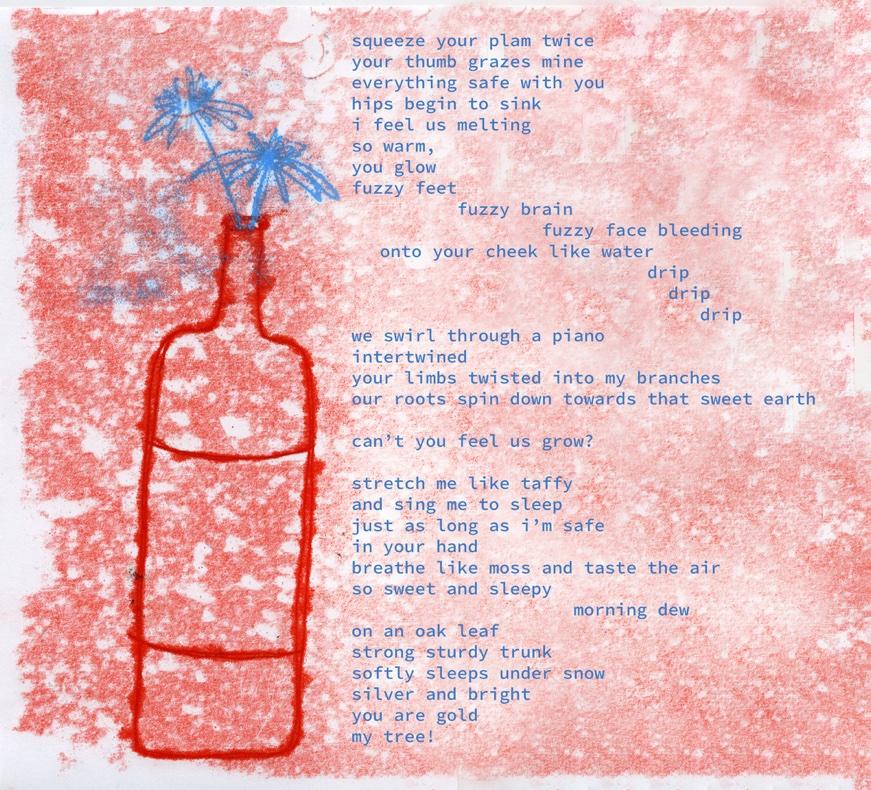 squeeze your plam twice
your thumb grazes mine
everything safe with you
hips begin to sink
i feel us melting
so warm,
you glow
fuzzy feet
fuzzy brain
fuzzy face bleeding
onto your cheek like water
drip
drip
drip
we swirl through a piano
intertwined
your limbs twisted into my branches
our roots spin down towards that sweet earth
can’t you feel us grow?
stretch me like taffy
and sing me to sleep
just as long as i’m safe
in your hand
breathe like moss and taste the air
so sweet and sleepy
morning dew
on an oak leaf
strong sturdy trunk
softly sleeps under snow
silver and bright
you are gold
my tree!